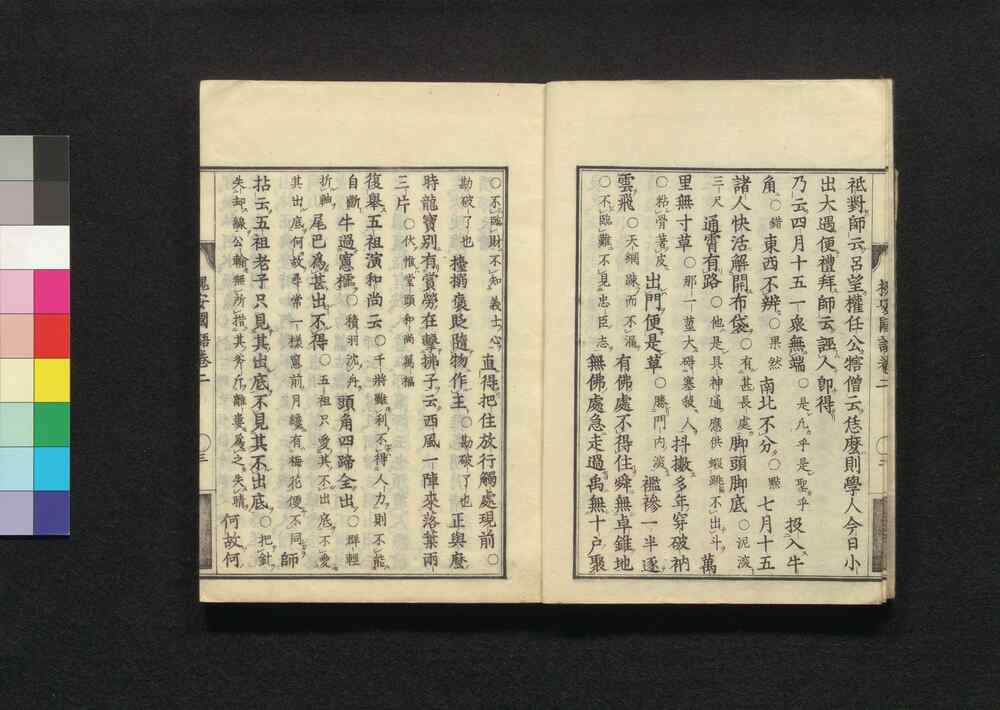 祗對師云呂望權任公犗僧云恁麼則學人今日小
出大遇便禮拜師云誣人即得
乃云四月十五一衆無端○是凡乎是聖乎投入牛
角○錯東西不辨○果然南北不分○黙七月十五
諸人快活解開布袋○有甚長處脚頭脚底○泥深
三尺通霄有路○他是具神通應供蝦跳不出斗萬
里無寸草○那一莖大礙塞殺人抖擻多年穿破衲
○粘骨著皮出門便是草○勝門内深襤襂一半逐
雲飛○天網疎而不漏有佛處不得住舜無卓錐地
○不臨難不見忠臣志無佛處急走過禹無十戸聚
○不臨財不知義士心直得把住放行觸處現前○
勘破了也擡搦褒貶隨物作主○勘破了也正與麼
時龍寶別有賞勞在擊拂子云西風一陣來落葉兩
三片○伏惟堂頭和尚萬福
復舉五祖演和尚云○千將雖利不得人力則不能
自斷牛過窻櫺○積羽沈舟頭角四蹄全出○群輕
折軸尾巴爲甚出不得○五祖只愛其不出底不愛
其出底何故尋常一樣窻前月纔有梅花便不同師
拈云五祖老子只見其出底不見其不出底○把針
失却線公輸無所措其斧斤離婁爲之失睛何故何
槐安國語卷二